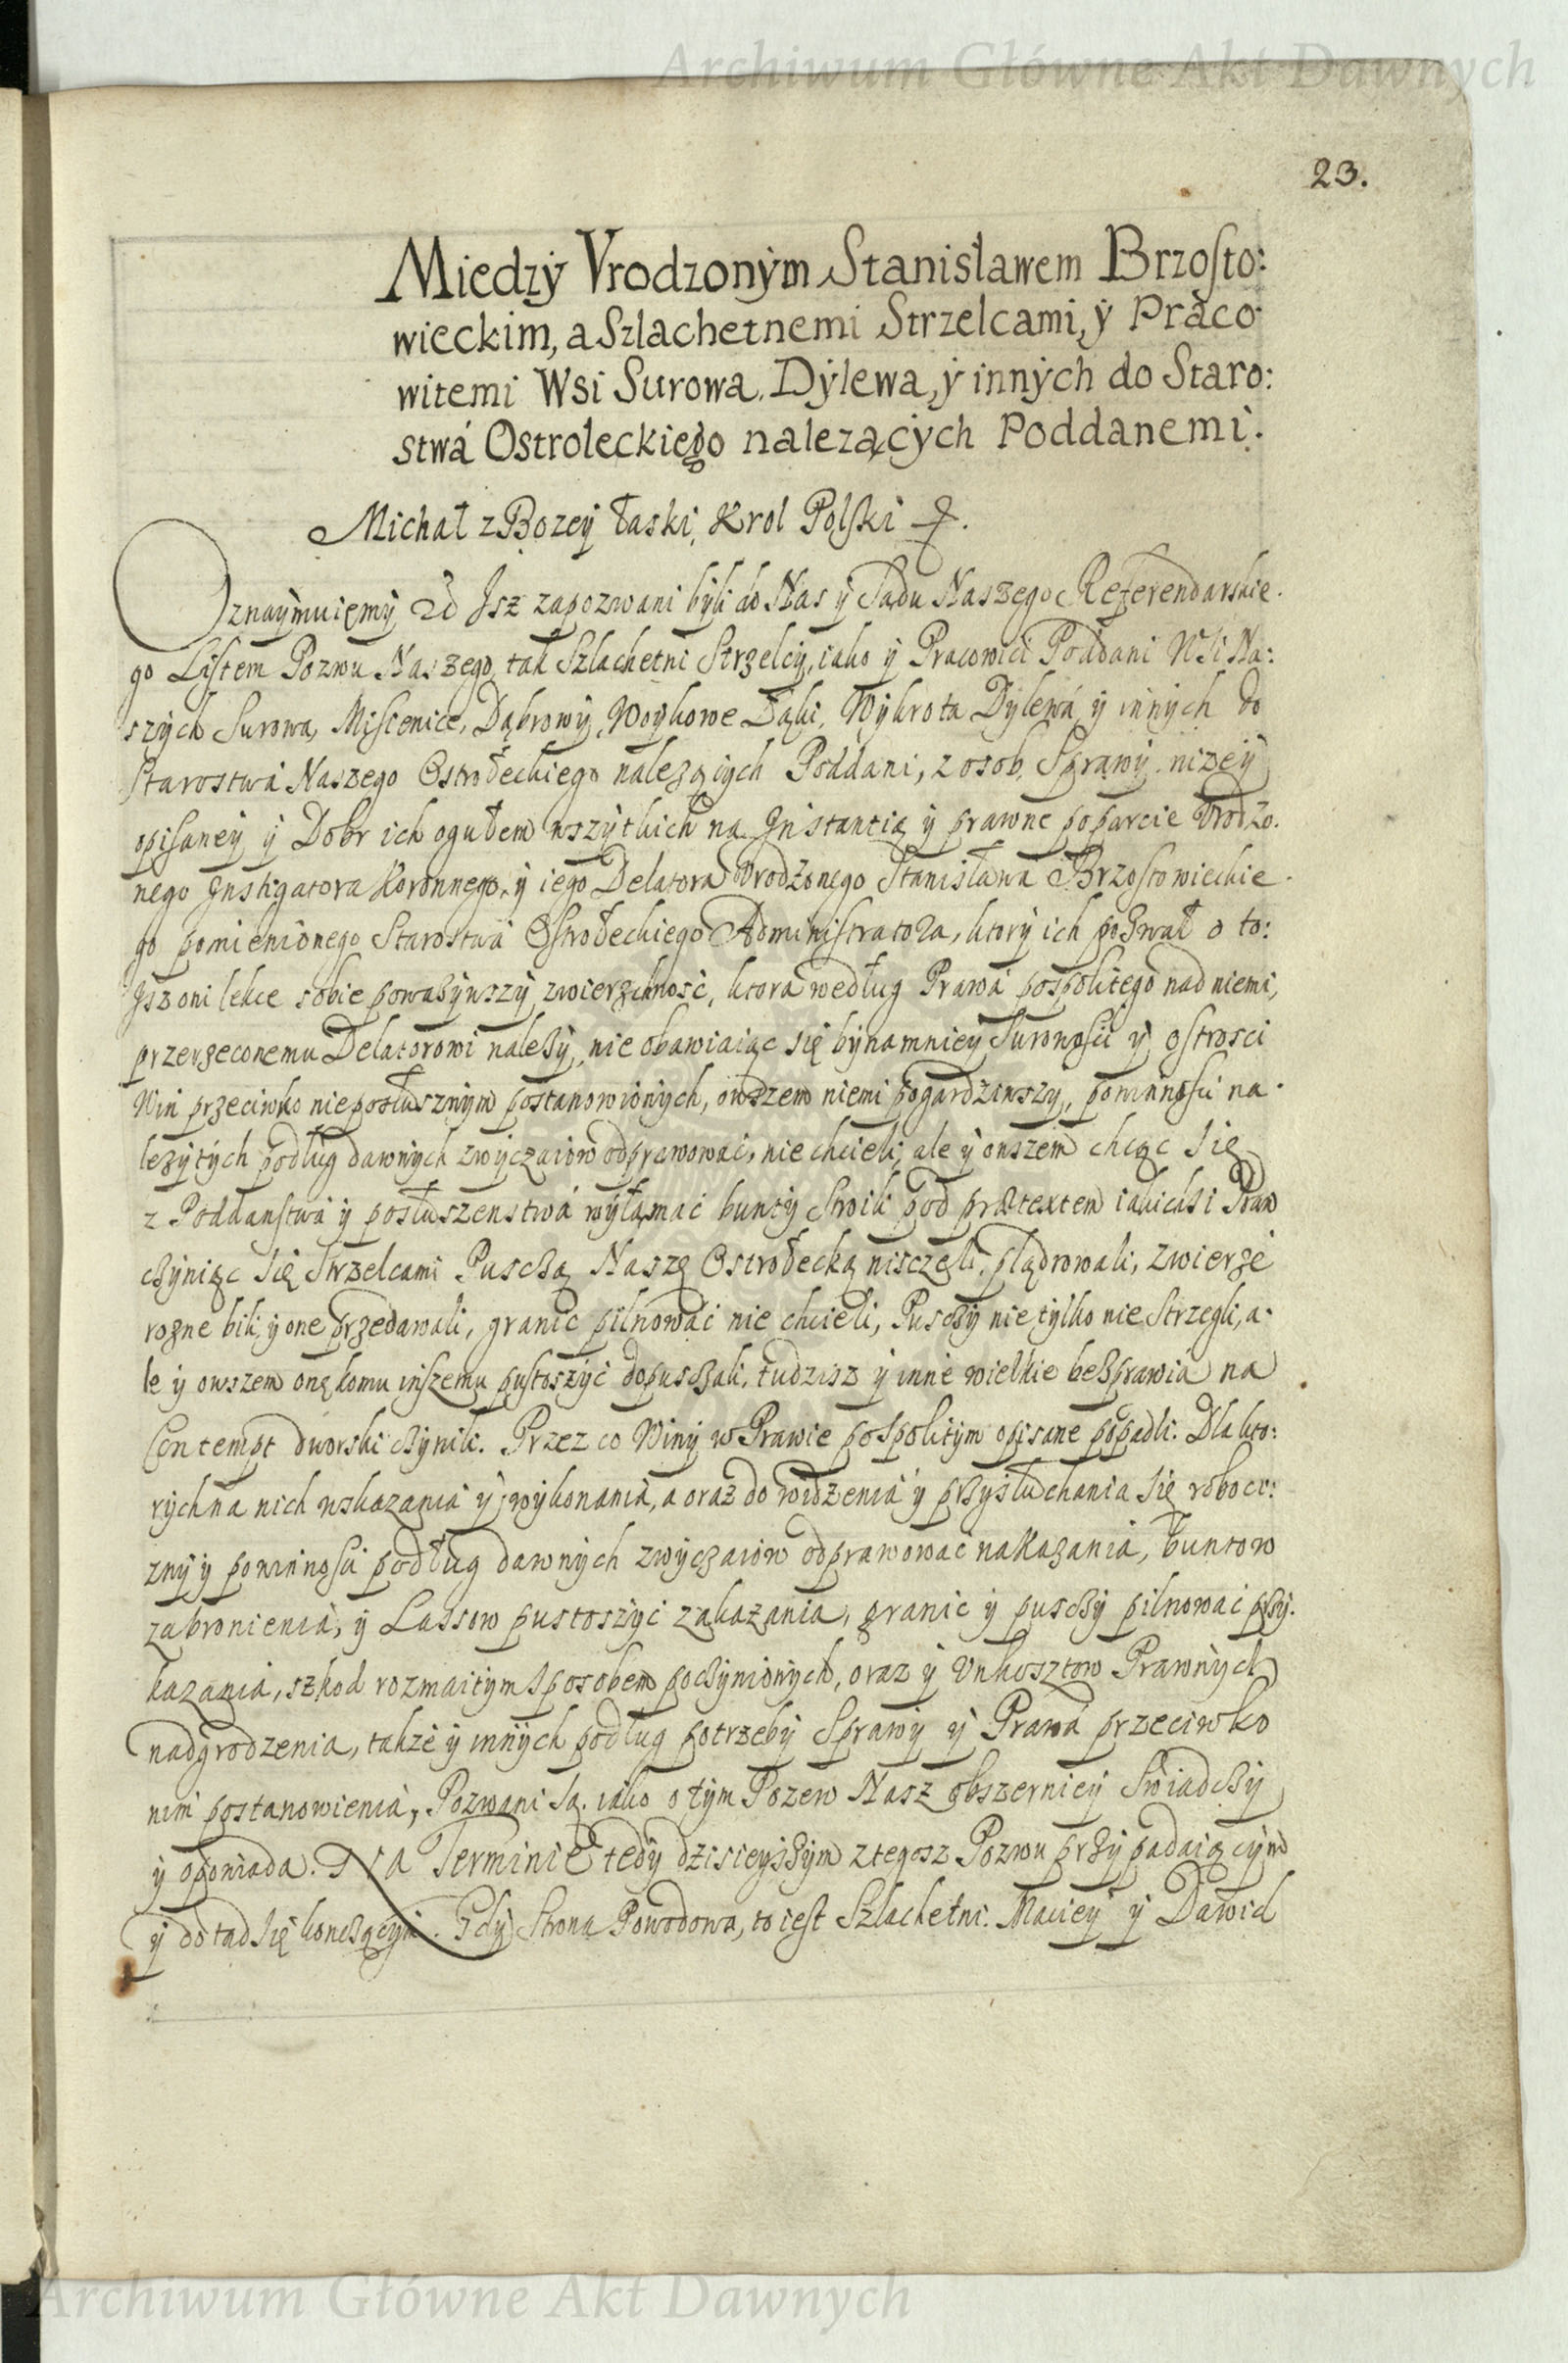 Archiwum Główne Akt Dawnych
23.
Miedzÿ Vrodzonÿm Stanisławem Brzosto:
wieckim, a Szlachetnemi Strzelcami, ÿ Praco
witemi Wsi Surowa, Dÿlewa, ÿ innÿch do Staro:
stwá Ostroleckiego nalezącÿch Poddanemi.
Michał z Bozeÿ łaski, Krol Polski
Oznaÿmuięmÿ Isz zapozwani bÿli do Nas ÿ Sądu Naszego Referendarskie.
go Listem Pozwu Naszego, tak Szlachetni Strzelcÿ, iako ÿ Pracowici Poddani WSi Na:
szÿch Surowa, Miscenice, Dąbrowÿ, Woÿkowe Łąki, Wÿkrota Dÿlewá ÿ innÿch do
Starostwá Naszego Ostrołeckiego nalezących Poddani, z osob, Sprawÿ nizeÿ
opisaneÿ ÿ Dobr ich ogułem wszÿtkich na Instantią ÿ prawne poparcie Vrodzo.
nego Instigatora Koronnego, ÿ iego Delatora Vrodzonego Stanisława Brzostowieckie.
go pomienionego Starostwá Ostrołeckiego Administratora, ktorÿ ich pozwał o to:
Isz oni lekce sobie powazÿwszÿ zwierzchność, ktora według Prawá pospolitego nad niemi,
przerzeconemu Delatorowi nalezÿ, nie obawiaiąc się bÿnamnieÿ Surowosci ÿ ostrosci
Win przeciwko nieposłusznÿm postanowionÿch, owszem niemi pogardziwszÿ, powinnosci na.
lezÿtÿch podług dawnÿch zwÿczaiow odprawować, nie chcieli, ale ÿ owszem chcąc się
z Poddanstwá ÿ posłuszenstwá wÿłąmać buntÿ Stroili pod prætextem iakichsi Praw
czÿniąc się Strzelcami Puszczą Naszę Ostrołecką nisczęli, plądrowali, zwierzé
rozne bili, ÿ one przedawali, granic pilnować nie chcieli, Pusczÿ nie tÿlko nie Strzegli, a.
le ÿ owszem onę komu inszemu pustoszÿć dopuszczali, tudzisz ÿ inne wielkie bezprawia na
Contempt dworski czÿnili. Przez co Winÿ w Prawie pospolitÿm opisane popadli. Dla kto:
rÿch na nich wskazania ÿ wÿkonania, a oraz do widzenia ÿ przÿsłuchania się robocι:
znÿ ÿ powinnosci podług dawnÿch zwÿczaiow odprawować nakazania, buntow
zabronienia, ÿ Lassow pustoszÿć zakazania, granic ÿ pusczÿ pilnować przÿ.
kazania, szkod rozmaitÿm sposobem poczÿnionÿch, oraz ÿ Vnkosztow Prawnÿch
nadgrodzenia, takze ÿ innÿch podług potrzebÿ Sprawÿ ÿ Prawa przeciwko
nim postanowienia, Pozwani są, iako o tÿm Pozew Nasz obszernieÿ Swiadczÿ
ÿ opowiada. Na Terminie tedÿ dzisieÿszÿm z tegosz Pozwu przÿpadaiącÿm
ÿ dotąd się konczącÿm. Gdÿ Strona Powodowa, to iest Szlachetni Macieÿ ÿ Dawid
Archiwum Główne Akt Dawnych